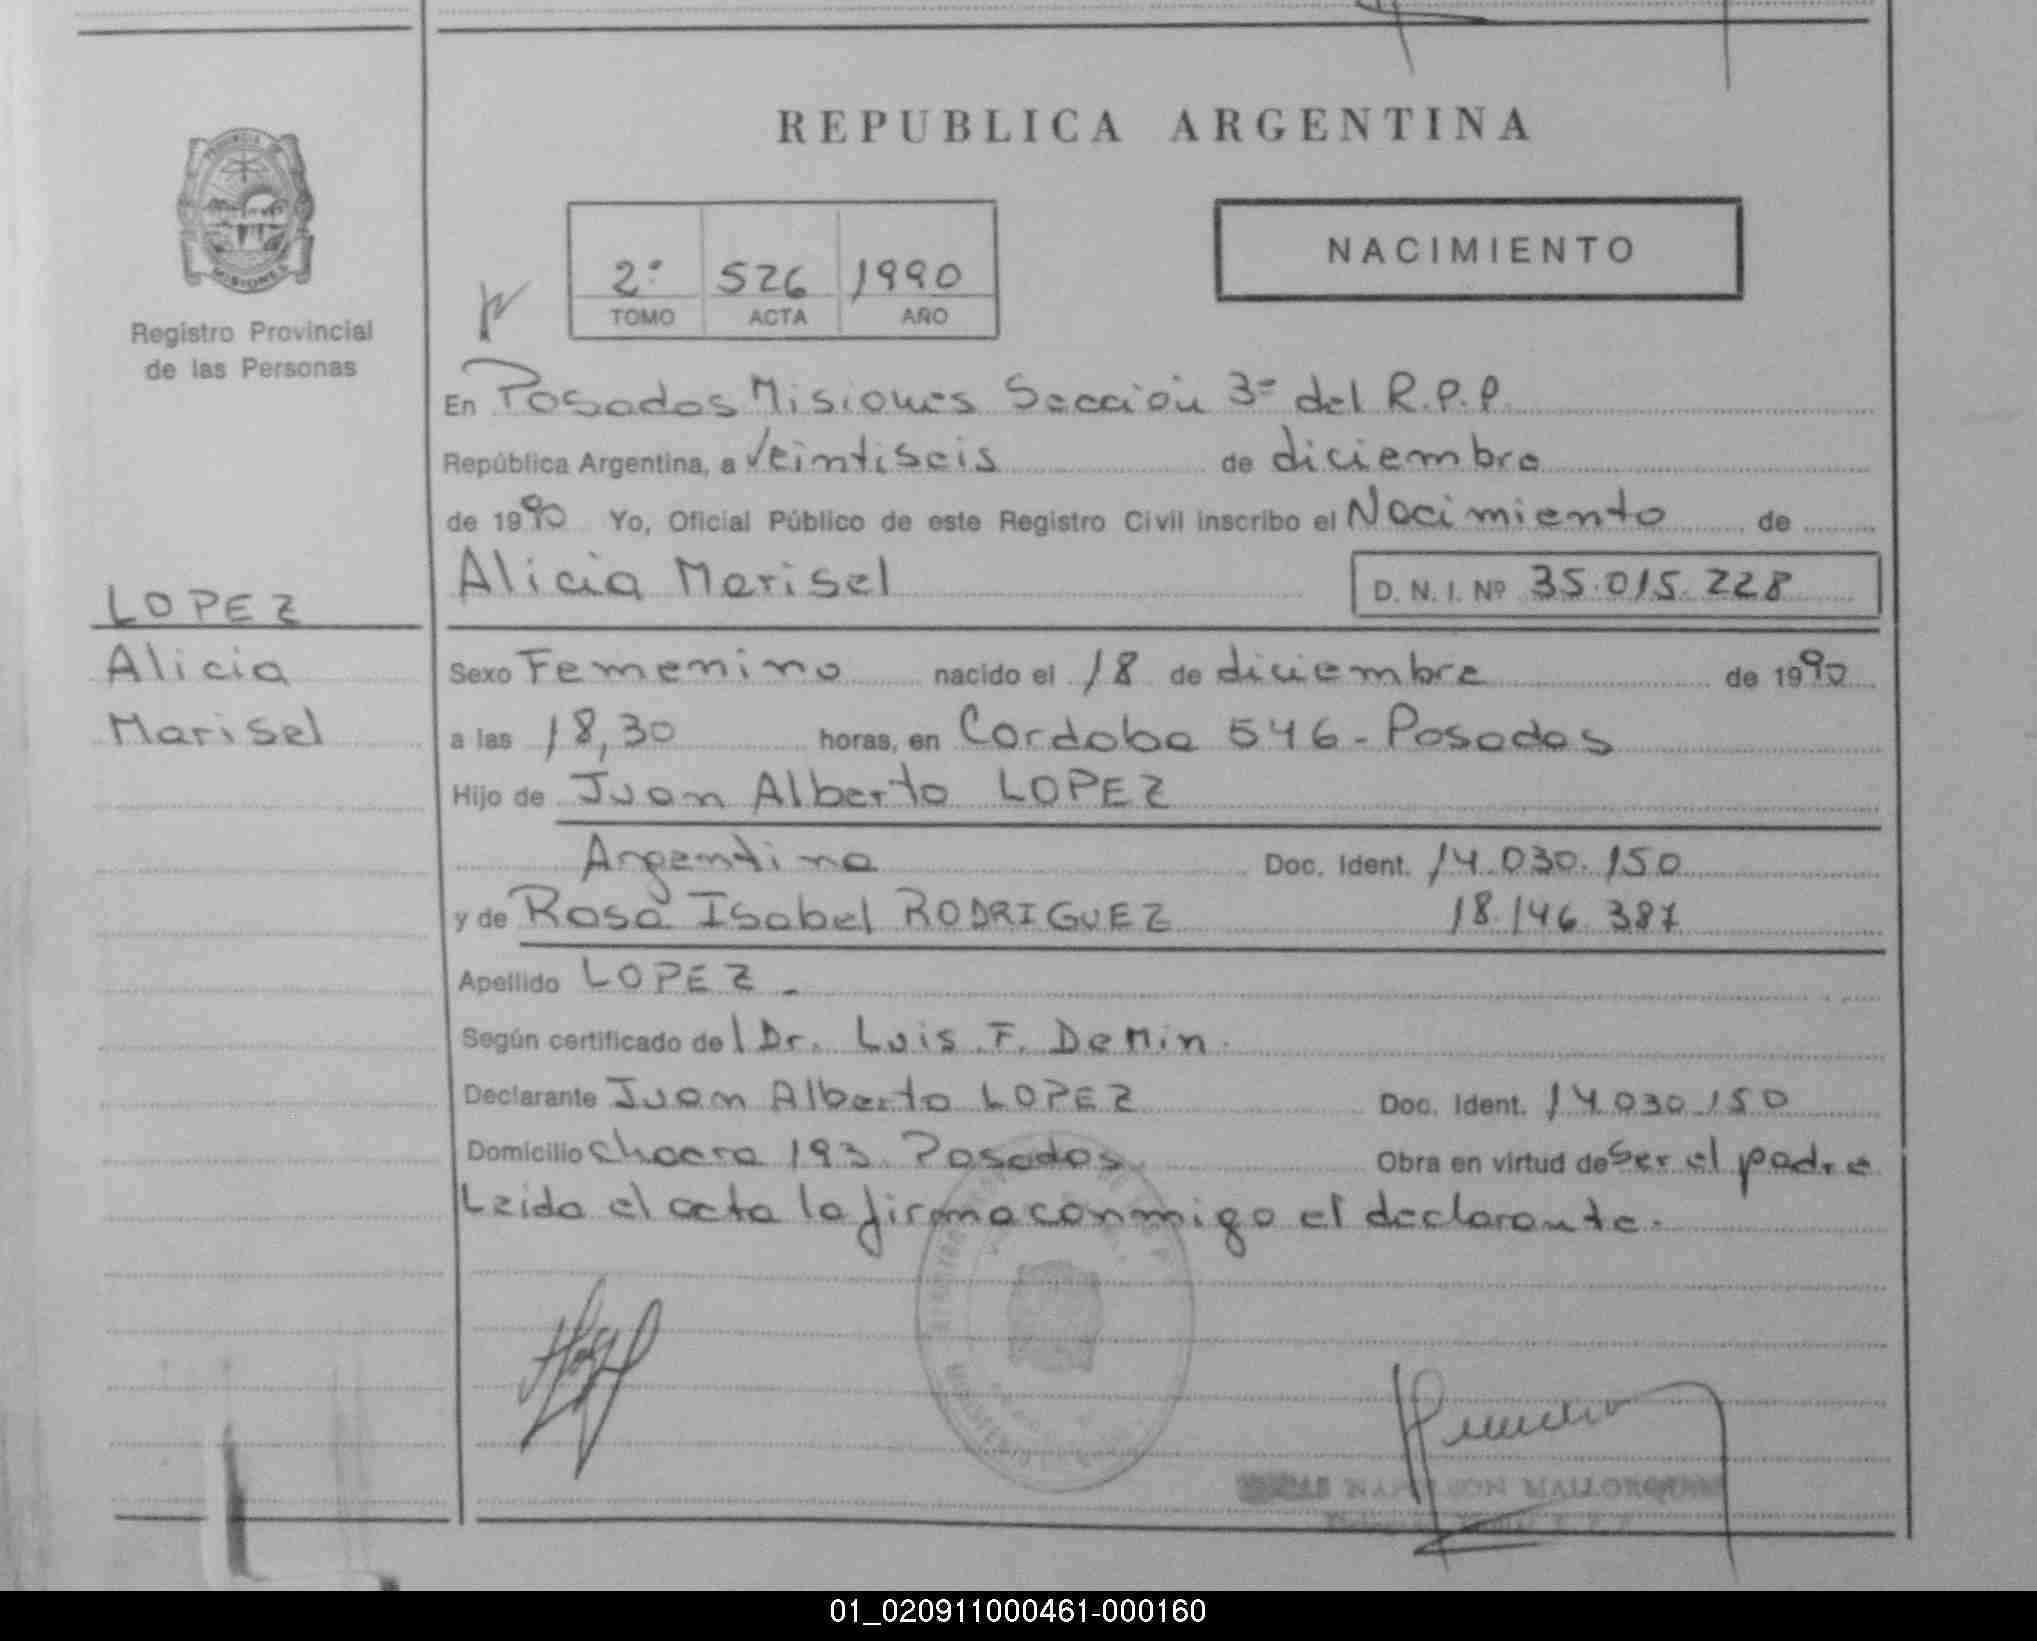 REPUBLICA ARGENTINA
PROVINCIA DE
MISIONES
Registro Provincial
de las Personas
NACIMIENTO
2º 526 1990
TOMO ACTA AÑO
En Posadas Misiones Sección 3º del R.P.P.
República Argentina, a Veintiseis de diciembre
de 1990 Yo, Oficial Público de este Registro Civil inscribo el Nacimiento de
Alicia Marisel D. N. I. Nº 35.015.228
LOPEZ
Alicia
Marisel
Sexo Femenino nacido el 18 de diciembre de 1990
a las 18,30 horas, en Cordoba 546 - Posadas
Hijo de Juan Alberto LOPEZ
Argentina Doc. Ident. 14.030.150
y de Rosa Isabel RODRIGUEZ 18.146.387
Apellido LOPEZ -
Según certificado del Dr. Luis F. DeMin.
Declarante Juan Alberto LOPEZ Doc. Ident. 14.030.150
Domicilio chacra 193 Posadas Obra en virtud de ser el padre
Leida el acta la firma conmigo el declarante.
01_020911000461-000160